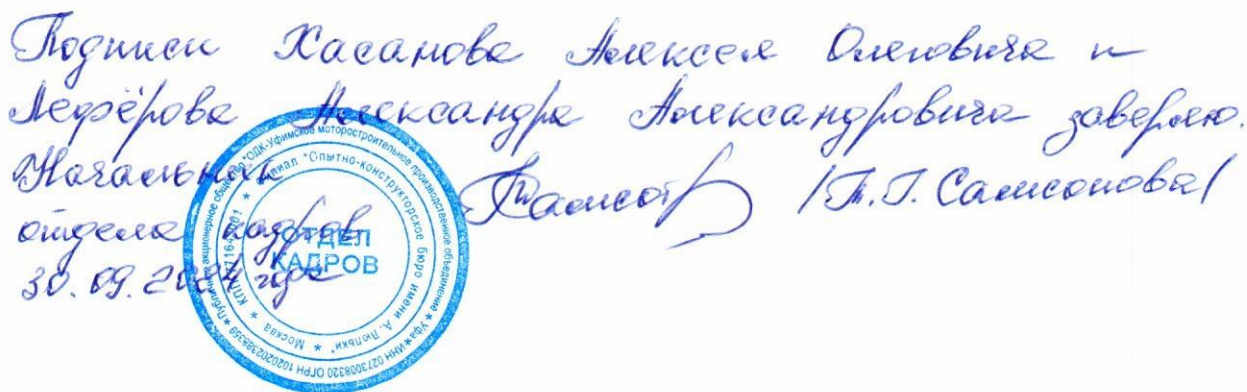 Подписи Хасанова Алексея Олеговича и
Лефёрова Александра Александровича заверяю.
Начальник
отдела кадров
/Т.Г. Самсонова/
30.09.2024 года
Публичное акционерное общество "ОДК-Уфимское моторостроительное производственное объединение" * Уфа * ИНН 0273008320 ОГРН 1020202388359 *
Филиал "Опытно-конструкторское бюро имени А. Люльки" * Москва * КПП
ОТДЕЛ
КАДРОВ